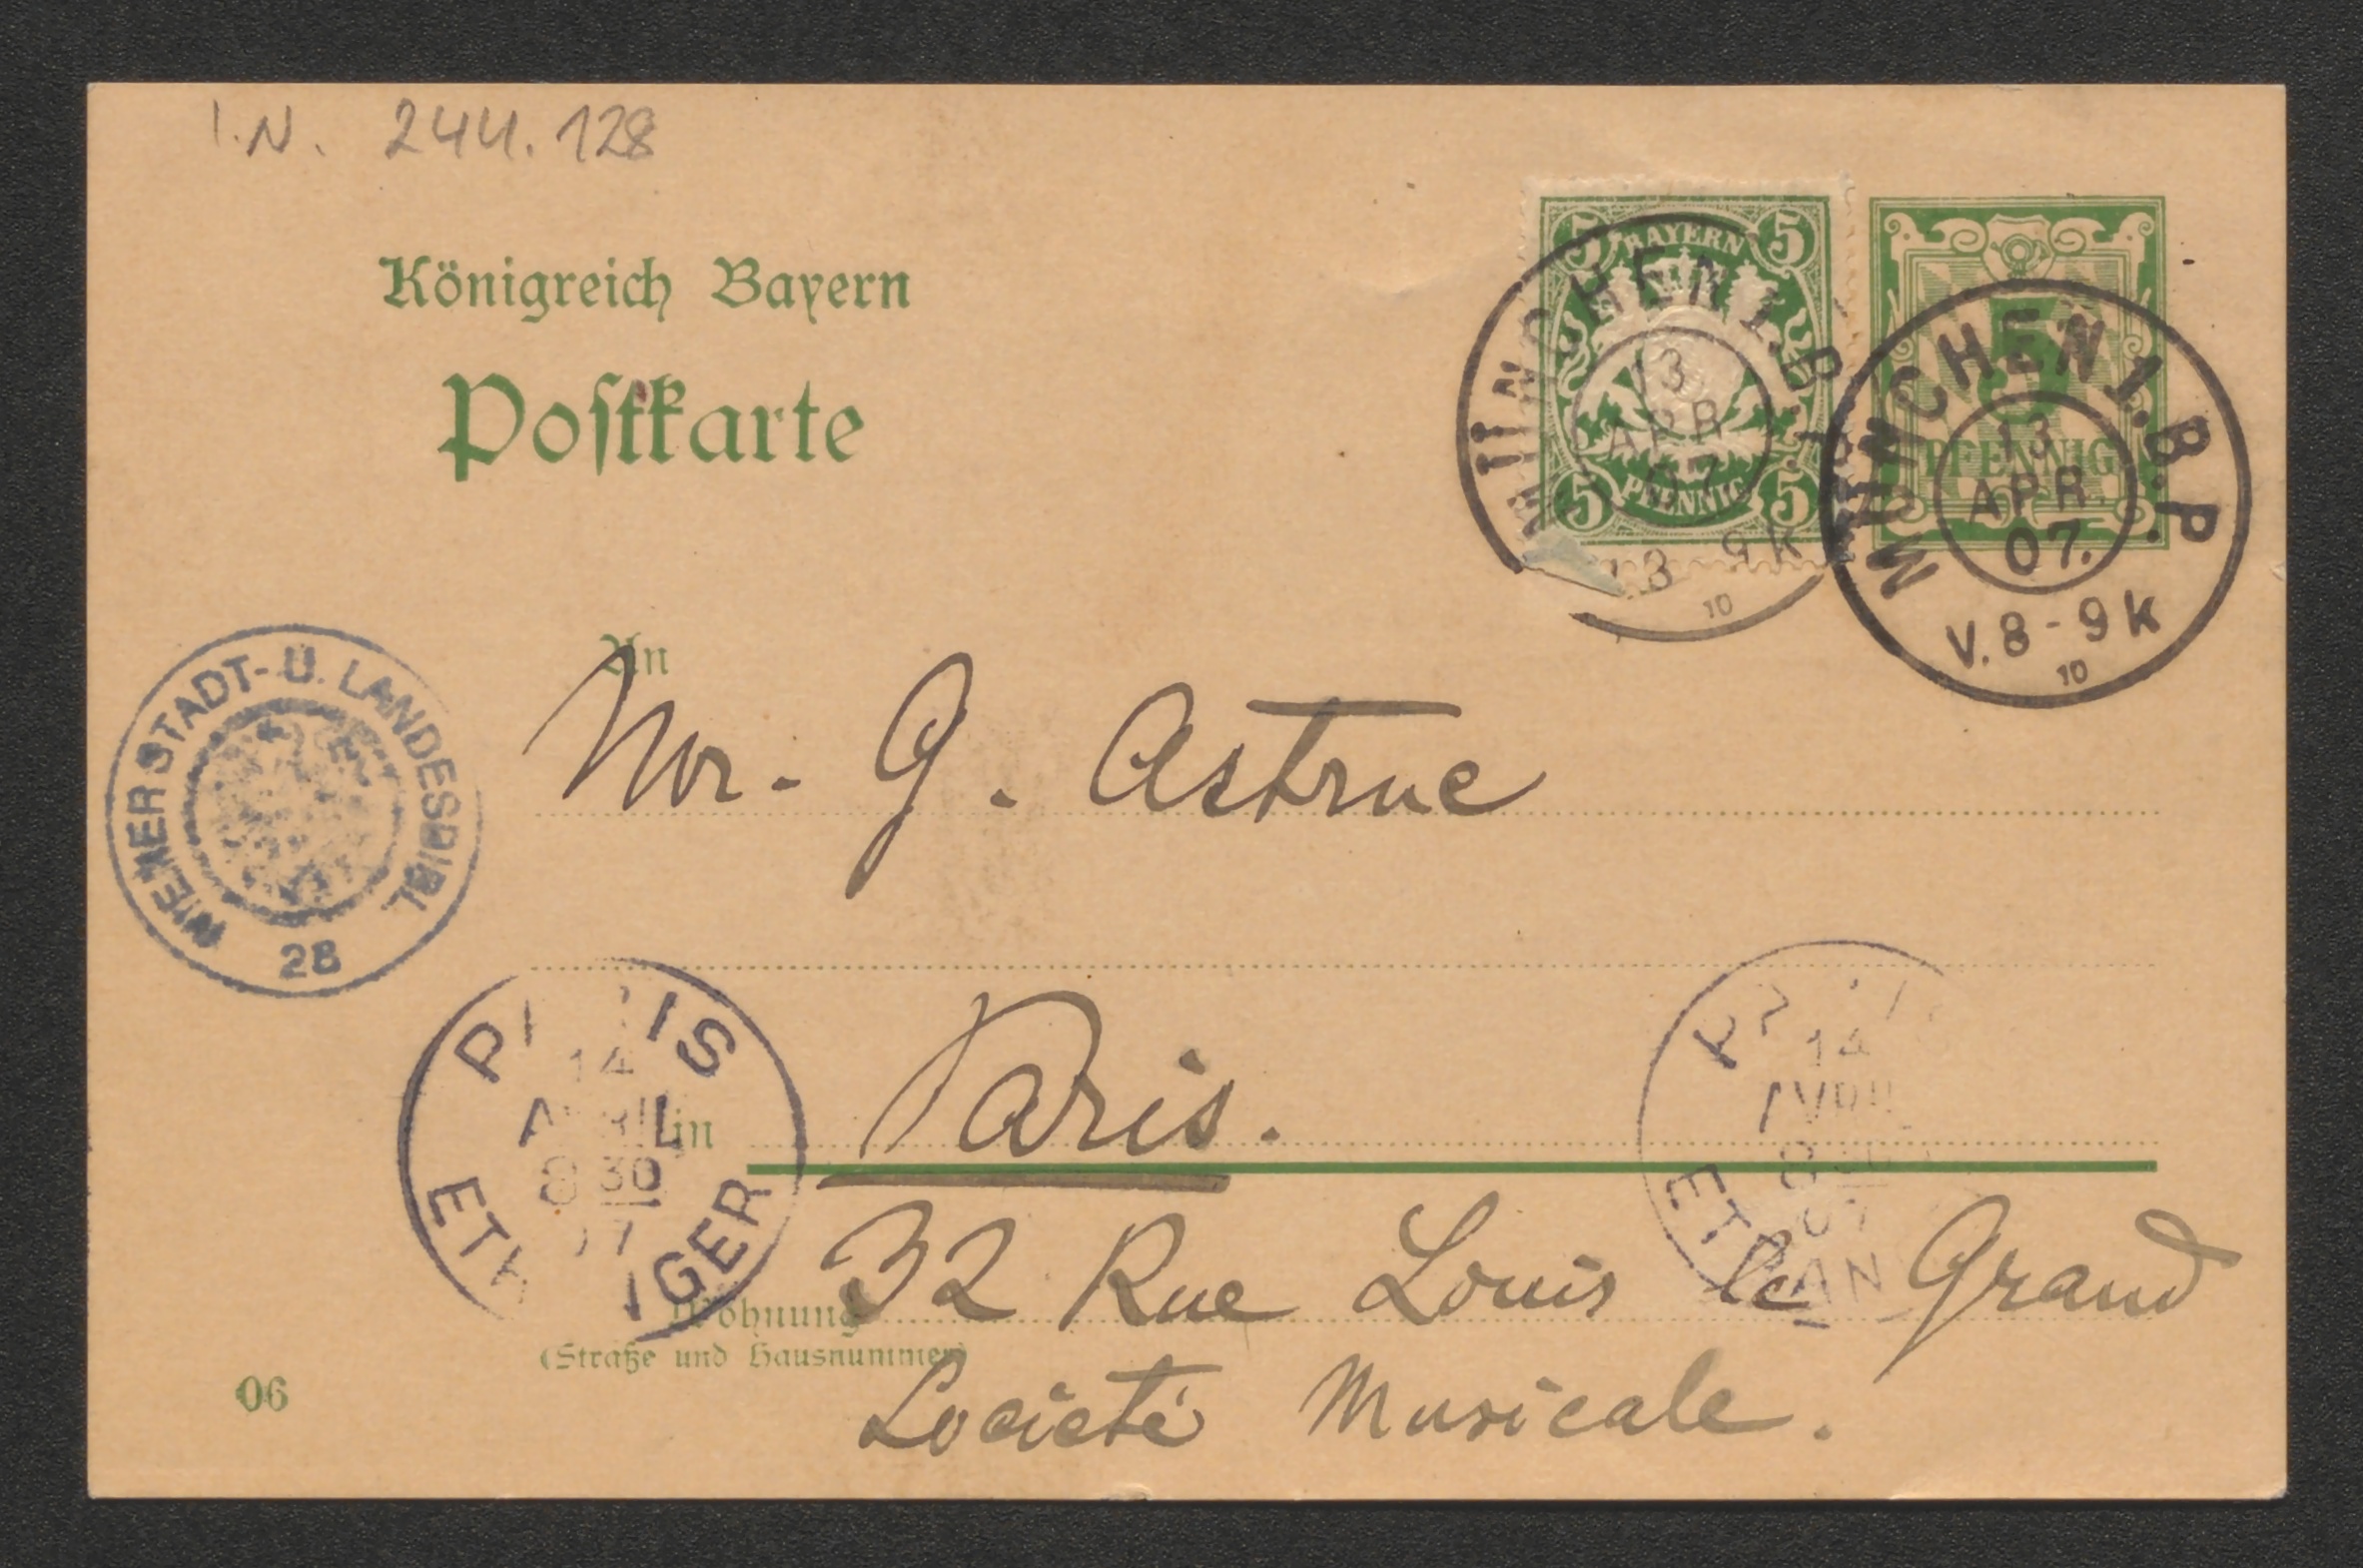 I.N. 244.128
Königreich Bayern
Postkarte
5 BAYERN 5
5 PFENNIG 5
MÜNCHEN 1. B. P.
13
APR
07
V. 8 - 9 K
10
5
PFENNIG
MÜNCHEN 1. B. P.
13
APR
07.
V. 8 - 9 K
10
An
Mr. G. Astruc
WIENER STADT- U. LANDESBIBL.
28
in Paris.
PARIS
14
AVRIL
8 30
07
ETRANGER
PARIS
14
AVRIL
8 30
07
ETRANGER
Wohnung 32 Rue Louis le Grand
(Straße und Hausnummer)
Societé Musicale.
06